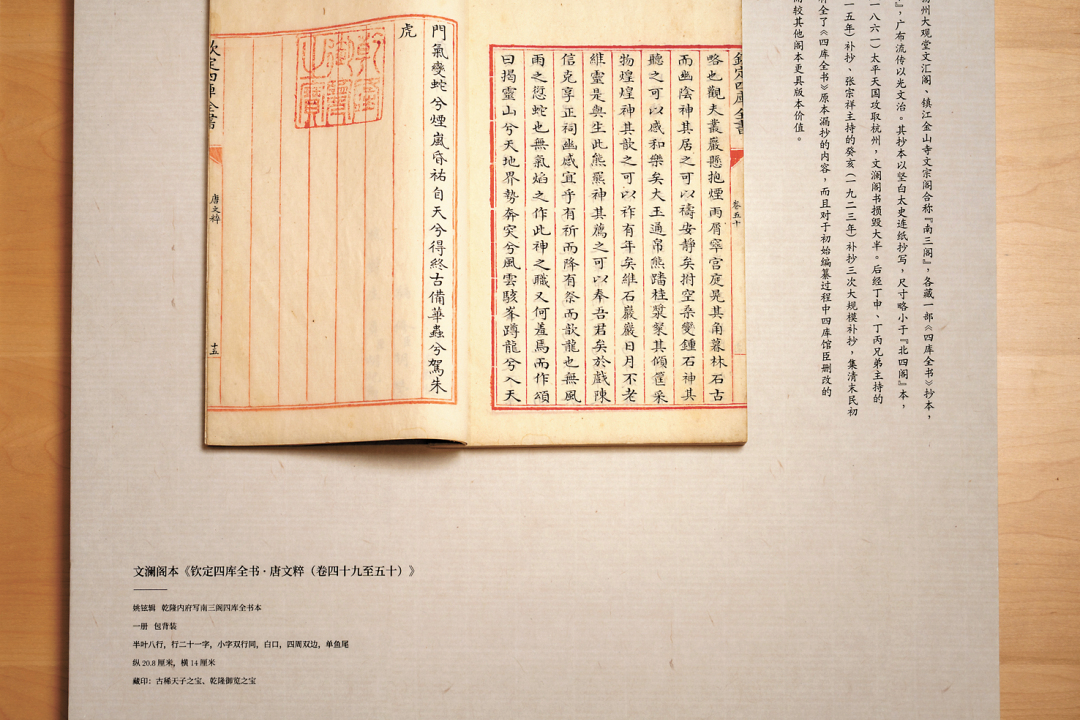 州大观堂文汇阁、镇江金山寺文宗阁合称『南三阁』，各藏一部《四库全书》抄本，
』，广布流传以光文治。其抄本以坚白太史连纸抄写，尺寸略小于『北四阁』本，
一八六一）太平天国攻取杭州，文澜阁书损毁大半。后经丁申、丁丙兄弟主持的
一五年）补抄、张宗祥主持的癸亥（一九二三年）补抄三次大规模补抄，集清末民初
全了《四库全书》原本漏抄的内容，而且对于初始编纂过程中四库馆臣删改的
而较其他阁本更具版本价值。
欽定四庫全書
卷五十
略也觀夫叢巖懸抱煙雨屑窣宫庭晃其角暮林石古
而幽陰神其居之可以禱安靜矣拊空桑變鍾石神其
聽之可以感和樂矣大玉通帛熊蹯桂漿粲其傾筐采
物煌煌神其歆之可以祚有年矣維石巖巖日月不老
維靈是與生此熊羆神其薦之可以奉吾君矣於戲陳
信克享正祠幽感宜乎有祈而降有祭而歆龍也無風
雨之愆蛇也無氣焰之作此神之職又何羞焉而作頌
曰揭靈山兮天地界勢奔突兮風雲駭峯蹲龍兮入天
門氣變蛇兮煙嵐昏祐自天兮得終古備華蟲兮駕朱
虎
乾隆御覽之寶
欽定四庫全書
唐文粹
十五
文澜阁本《钦定四库全书·唐文粹（卷四十九至五十）》
姚铉辑 乾隆内府写南三阁四库全书本
一册 包背装
半叶八行，行二十一字，小字双行同，白口，四周双边，单鱼尾
纵 20.8 厘米，横 14 厘米
藏印：古稀天子之宝、乾隆御览之宝